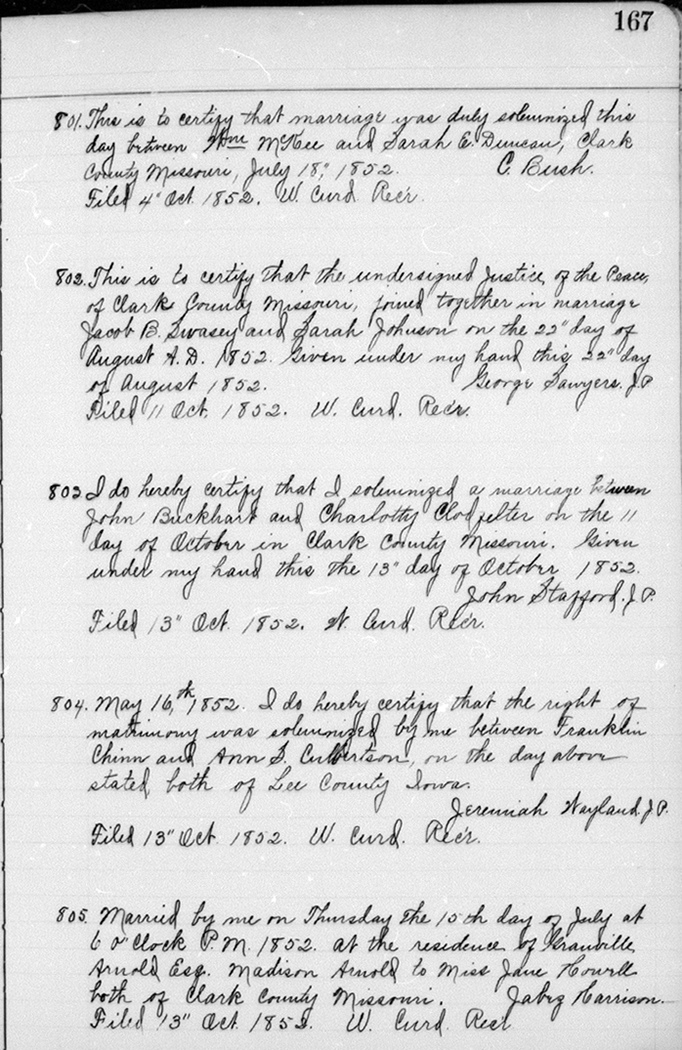 167
801. This is to certify that marriage was duly solemnized this
day between Wm McKee and Sarah E. Duncan, Clark
County Missouri, July 18", 1852. C. Bush.
Filed 4" Oct. 1852. W. Curd. Rec'r.
802. This is to certify that the undersigned Justice, of the Peace,
of Clark County Missouri, joined together in marriage
Jacob B. Swasey and Sarah Johnson on the 22" day of
August A.D. 1852. Given under my hand this 22" day
of August 1852. George Sawyers. J.P.
Filed 11 Oct, 1852. W. Curd. Rec'r.
803 I do hereby certify that I solemnized a marriage between
John Buckhart and Charlotty Clodfelter on the 11
day of October in Clark County Missouri. Given
under my hand this the 13" day of October 1852.
John Stafford. J.P.
Filed 13" Oct. 1852. W. Curd. Rec'r.
804. May 16,th 1852. I do hereby certify that the right of
matrimony was solemnized by me between Franklin
Chinn and Ann S. Culbertson, on the day above
stated, both of Lee County Iowa.
Jeremiah Wayland. J.P.
Filed 13" Oct. 1852. W. Curd. Rec'r.
805. Married by me on Thursday the 15th day of July at
6 o"Clock P.M. 1852. at the residence of Granville
Arnold Esq. Madison Arnold to Miss Jane Howell
both of Clark County Missouri. Jabez Harrison.
Filed 13" Oct. 1852. W. Curd. Rec'r